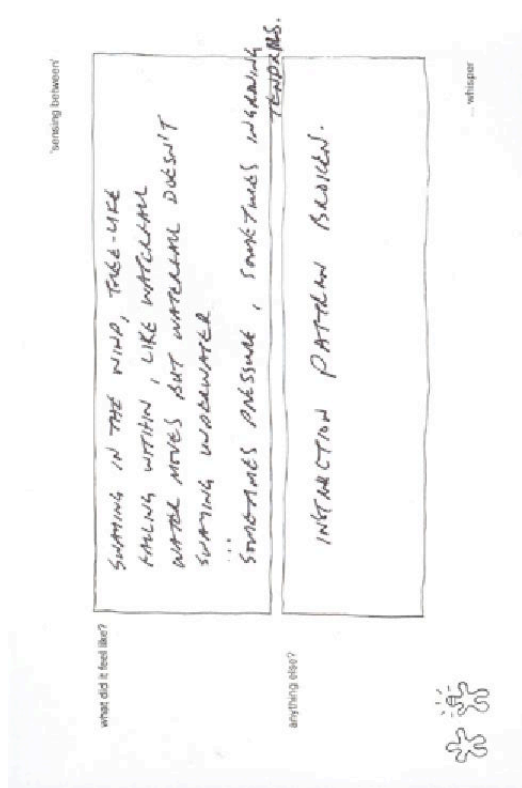 'sensing between'
what did it feel like?
SWAYING IN THE WIND, TREE-LIKE
FALLING WITHIN, LIKE WATERFALL
WATER MOVES BUT WATERFALL DOESN'T
SWAYING UNDERWATER
...
SOMETIMES PRESSURE, SOMETIMES INGROWING
TENDRILS.
anything else?
INSTRUCTION PATTERN BROKEN.
... whisper